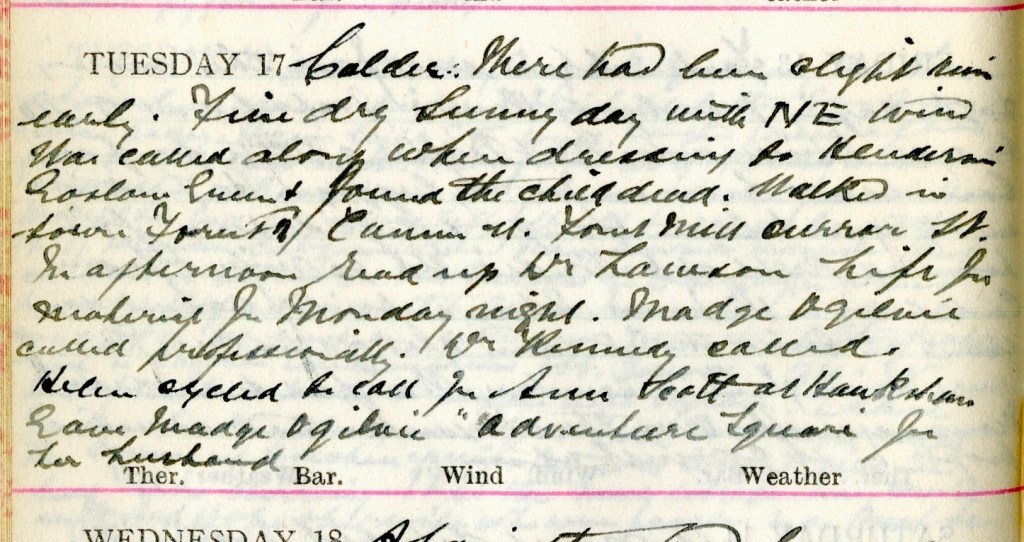 TUESDAY 17 Colder. There had been slight rain
early. Fine dry Sunny day with NE wind
Was called along when dressing to
& found the child dead. Walked in
town Mill St.
In afternoon read up Dr Lawson Life for
material for Monday night. Madge Ogilvie
called professionally. Dr Kennedy called.
Helen cycled to call for Ann Scott at
Gave Madge Ogilvie "Adventure Square for
her husband
Ther. Bar. Wind Weather
WEDNESDAY 18